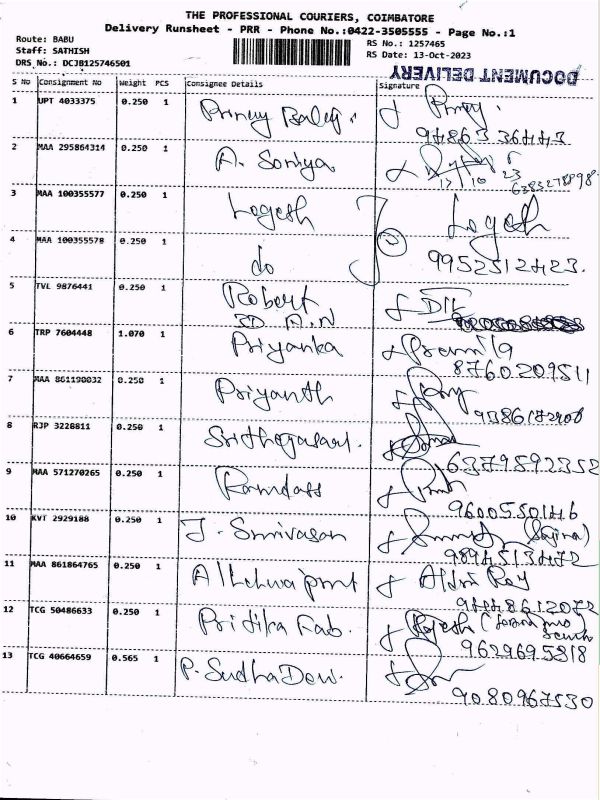 THE PROFESSIONAL COURIERS, COIMBATORE
Delivery Runsheet - PRR - Phone No.:0422-3505555 - Page No.:1
Route: BABU
Staff: SATHISH
DRS No.: DCJB125746501
RS No.: 1257465
RS Date: 13-Oct-2023
DOCUMENT DELIVERY
S No Consignment No Weight PCS Consignee Details Signature
1 UPT 4033375 0.250 1
2 MAA 295864314 0.250 1 A. Soniya
13/10 23
3 MAA 100355577 0.250 1 Logesh Logesh
4 MAA 100355578 0.250 1 do 9952512423.
5 TVL 9876441 0.250 1 Robert
6 TRP 7604448 1.070 1 Priyanka Premila
8760209511
7 MAA 861190032 0.250 1 Priyanth
8 RJP 3228811 0.250 1
6379592352
9 MAA 571270265 0.250 1 Ramdass
9600550146
10 KVT 2929188 0.250 1 J. Srinivasan
9894513472
11 MAA 861864765 0.250 1
9448612072
12 TCG 50486633 0.250 1 Pritika Fab. Rajesh
9629695818
13 TCG 40664659 0.565 1 P. Sudha Devi.
9080967530